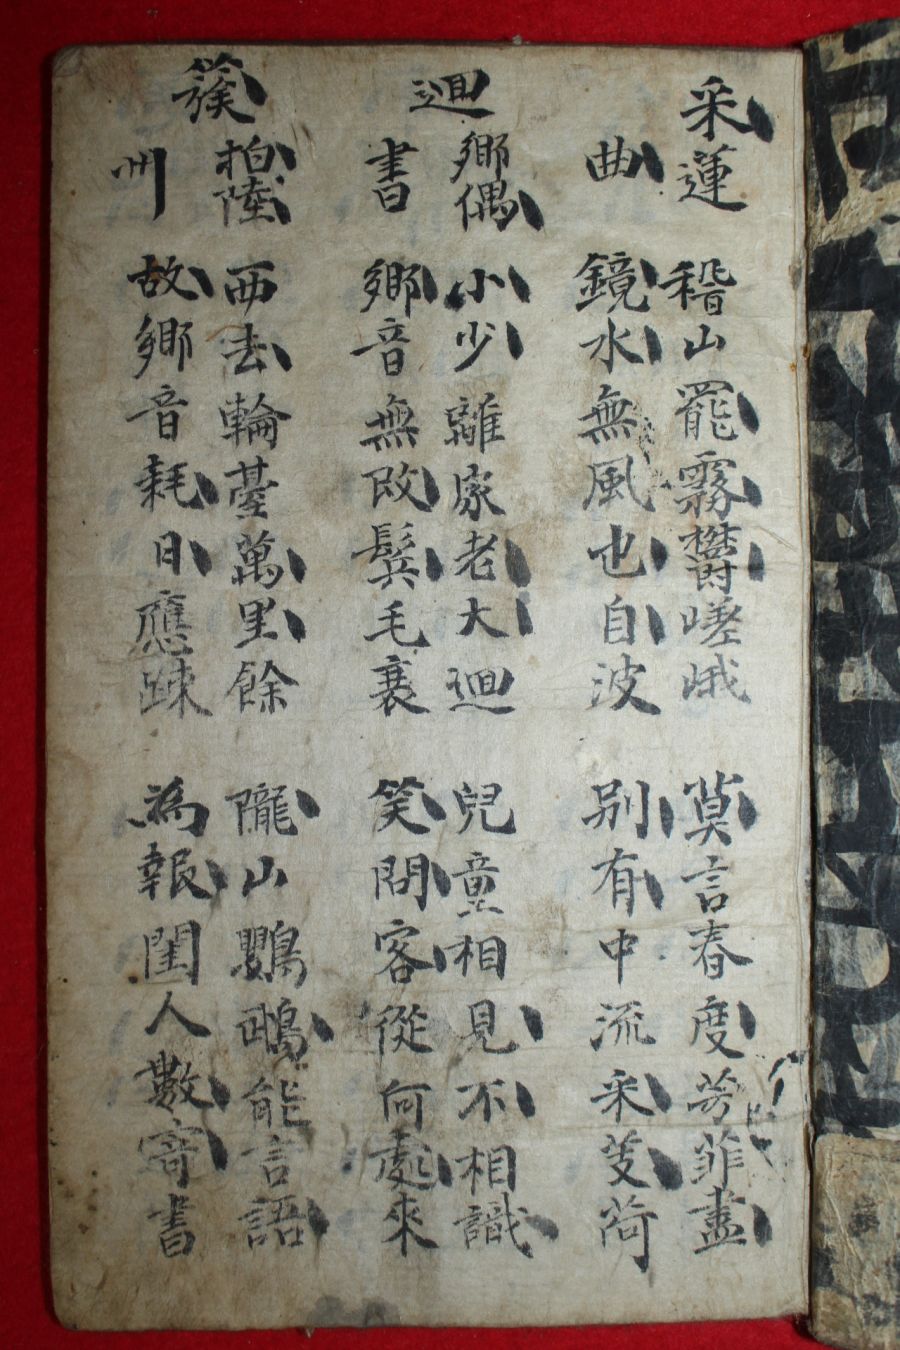 采蓮 稽山罷霧鬱嵯峨 莫言春度芳菲盡
曲 鏡水無風也自波 別有中流采芰荷
迴鄉偶 小少離家老大迴 兒童相見不相識
書 鄉音無改鬂毛衰 笑問客從何處來
簇拍陸 西去輪臺萬里餘 隴山鸚鵡能言語
州 故鄉音耗日應疎 為報閨人數寄書